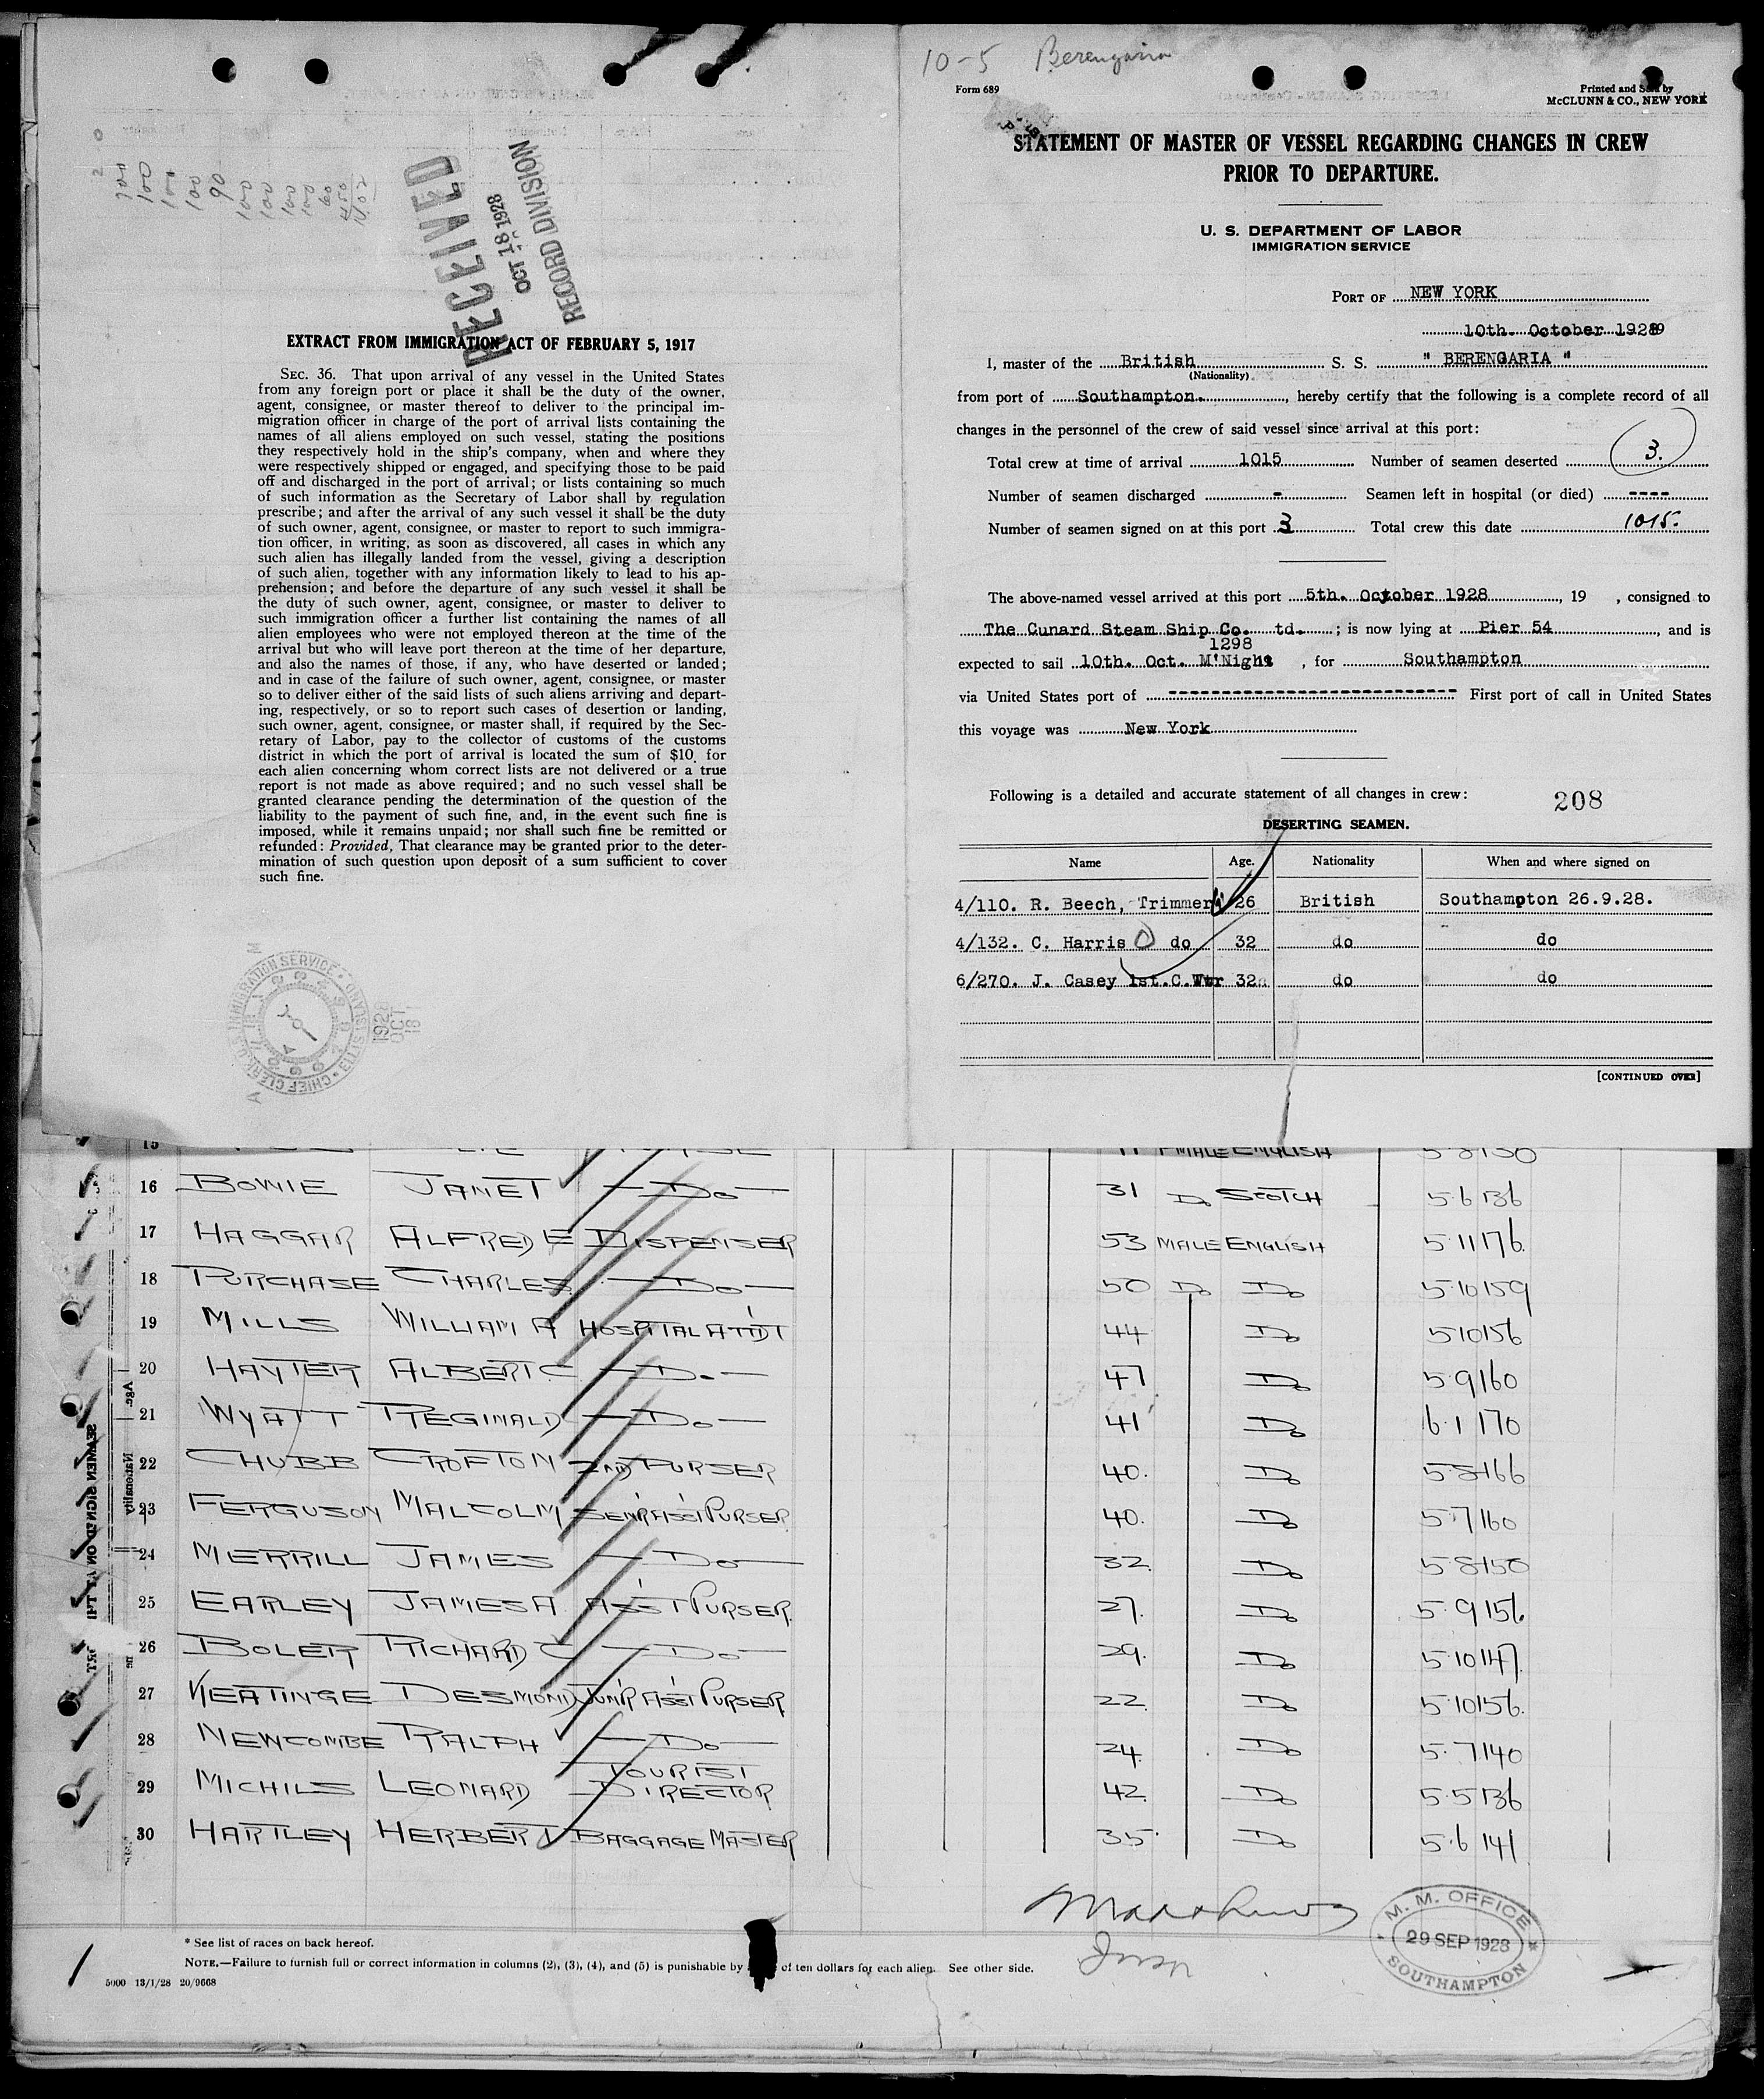 10-5 Berengaria
Form 689
Printed and Sold by
McCLUNN & CO., NEW YORK
STATEMENT OF MASTER OF VESSEL REGARDING CHANGES IN CREW
PRIOR TO DEPARTURE.
U. S. DEPARTMENT OF LABOR
IMMIGRATION SERVICE
PORT OF NEW YORK
10th. October 1928
I, master of the British S. S. " BERENGARIA "
(Nationality)
from port of Southampton. , hereby certify that the following is a complete record of all
changes in the personnel of the crew of said vessel since arrival at this port:
Total crew at time of arrival 1015 Number of seamen deserted 3.
Number of seamen discharged - Seamen left in hospital (or died) ----
Number of seamen signed on at this port 3 Total crew this date 1015.
The above-named vessel arrived at this port 5th. October 1928 , 19 , consigned to
The Cunard Steam Ship Co. td. ; is now lying at Pier 54 , and is
1298
expected to sail 10th. Oct. M'Night , for Southampton
via United States port of ---------------------------- First port of call in United States
this voyage was New York
Following is a detailed and accurate statement of all changes in crew:
208
DESERTING SEAMEN.
Name Age. Nationality When and where signed on
4/110. R. Beech, Trimmer 26 British Southampton 26.9.28.
4/132. C. Harris do 32 do do
6/270. J. Casey 1st.C.Wtr 32 do do
[CONTINUED OVER]
RECEIVED
OCT 18 1928
RECORD DIVISION
EXTRACT FROM IMMIGRATION ACT OF FEBRUARY 5, 1917
SEC. 36. That upon arrival of any vessel in the United States
from any foreign port or place it shall be the duty of the owner,
agent, consignee, or master thereof to deliver to the principal im-
migration officer in charge of the port of arrival lists containing the
names of all aliens employed on such vessel, stating the positions
they respectively hold in the ship's company, when and where they
were respectively shipped or engaged, and specifying those to be paid
off and discharged in the port of arrival; or lists containing so much
of such information as the Secretary of Labor shall by regulation
prescribe; and after the arrival of any such vessel it shall be the duty
of such owner, agent, consignee, or master to report to such immigra-
tion officer, in writing, as soon as discovered, all cases in which any
such alien has illegally landed from the vessel, giving a description
of such alien, together with any information likely to lead to his ap-
prehension; and before the departure of any such vessel it shall be
the duty of such owner, agent, consignee, or master to deliver to
such immigration officer a further list containing the names of all
alien employees who were not employed thereon at the time of the
arrival but who will leave port thereon at the time of her departure,
and also the names of those, if any, who have deserted or landed;
and in case of the failure of such owner, agent, consignee, or master
so to deliver either of the said lists of such aliens arriving and depart-
ing, respectively, or so to report such cases of desertion or landing,
such owner, agent, consignee, or master shall, if required by the Sec-
retary of Labor, pay to the collector of customs of the customs
district in which the port of arrival is located the sum of $10 for
each alien concerning whom correct lists are not delivered or a true
report is not made as above required; and no such vessel shall be
granted clearance pending the determination of the question of the
liability to the payment of such fine, and, in the event such fine is
imposed, while it remains unpaid; nor shall such fine be remitted or
refunded: Provided, That clearance may be granted prior to the deter-
mination of such question upon deposit of a sum sufficient to cover
such fine.
CHIEF CLERK U.S. IMMIGRATION SERVICE ELLIS ISLAND
1928 OCT 18
15 MALE ENGLISH 5 8 150
16 BOWIE JANET - DO - 31 DO SCOTCH 5 6 136
17 HAGGAR ALFRED E DISPENSER 53 MALE ENGLISH 5 11 176
18 PURCHASE CHARLES - DO - 50 DO DO 5 10 159
19 MILLS WILLIAM A HOSPITAL ATTDT 44 DO 5 10 156
20 HAYTER ALBERT C - DO - 47 DO 5 9 160
21 WYATT REGINALD - DO - 41 DO 6 1 170
22 CHUBB CROFTON 2ND PURSER 40. DO 5 8 166
23 FERGUSON MALCOLM SEN'R ASS'T PURSER 40. DO 5 7 160
24 MERRILL JAMES - DO - 32 DO 5 8 150
25 EARLEY JAMES A ASS'T PURSER 27. DO 5 9 156
26 BOLER RICHARD C - DO - 29. DO 5 10 147
27 KEATINGE DESMOND JUN'R ASS'T PURSER 22 DO 5 10 156
28 NEWCOMBE RALPH - DO - 24. DO 5 7 140
29 MICHILS LEONARD TOURIST DIRECTOR 42. DO 5 5 136
30 HARTLEY HERBERT BAGGAGE MASTER 35. DO 5 6 141
M. M. OFFICE
29 SEP 1928
SOUTHAMPTON
* See list of races on back hereof.
NOTE.—Failure to furnish full or correct information in columns (2), (3), (4), and (5) is punishable by of ten dollars for each alien. See other side.
5000 13/1/28 20/9668